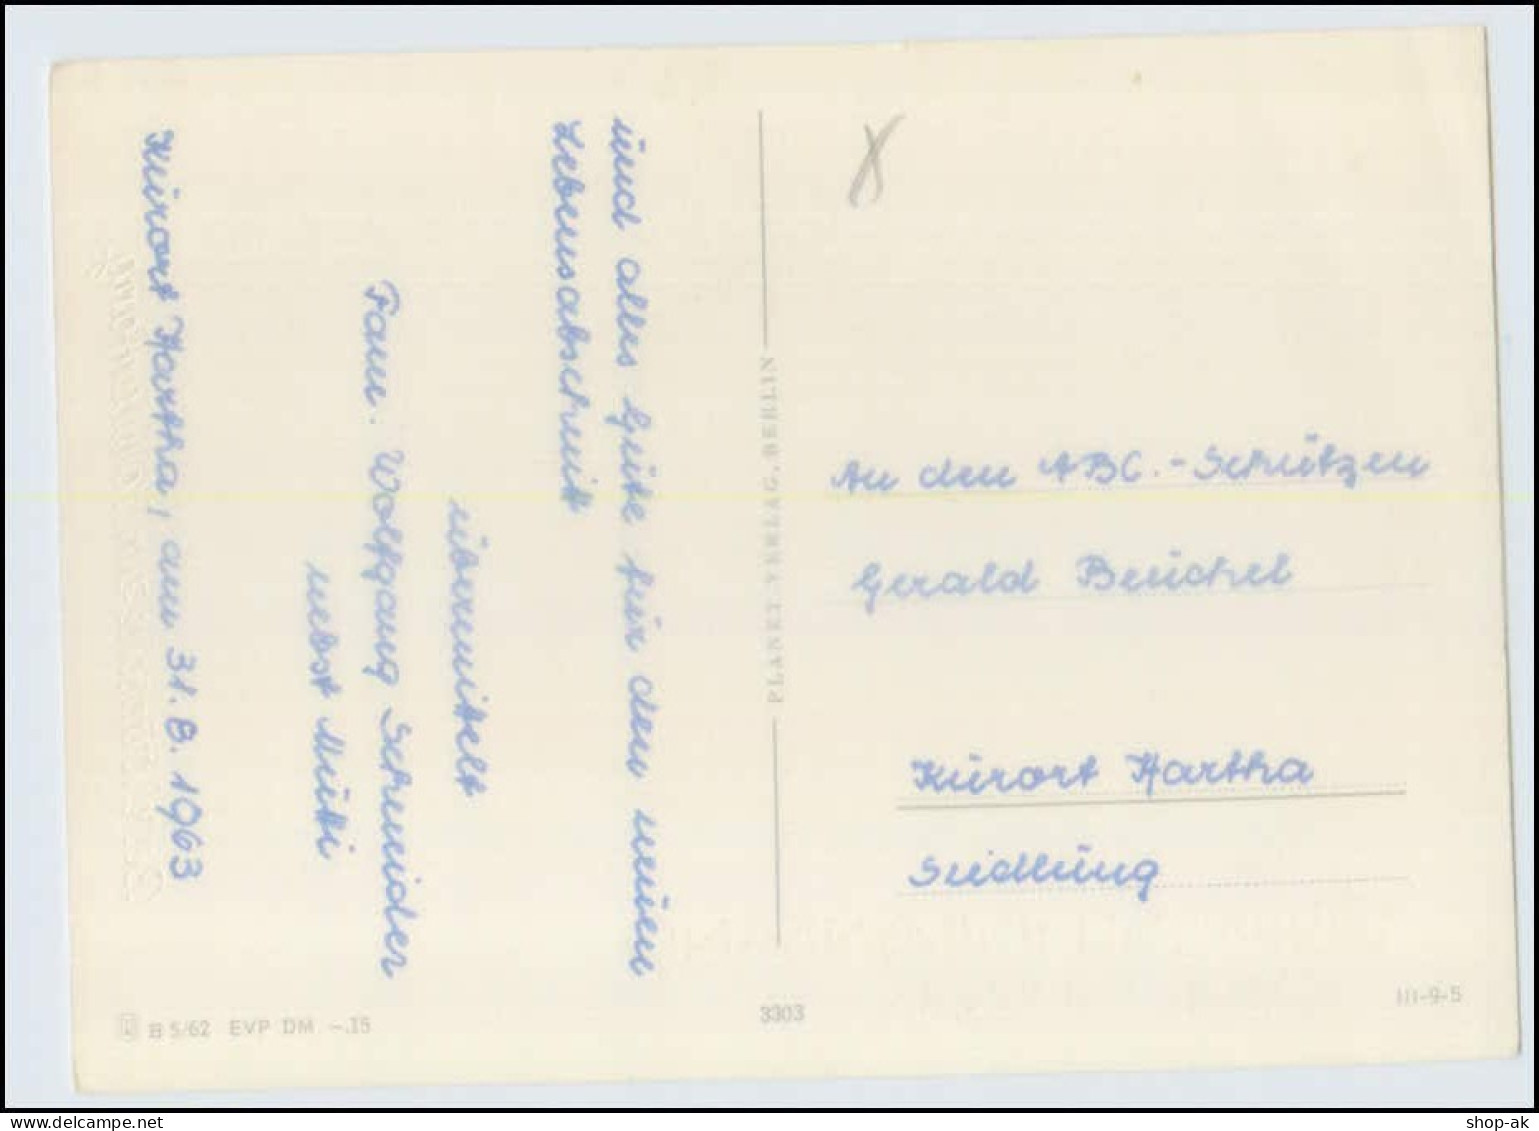 und alles Gute für den neuen
Lebensabschnitt
übermittelt
Fam. Wolfgang Schneider
nebst Mutti
Kurort Hartha, am 31. 8. 1963
PLANET-VERLAG, BERLIN
An den ABC.-Schützen
Gerald Beuchel
Kurort Hartha
Siedlung
B 5/62 EVP DM -.15
3303
III-9-5
shop-ak